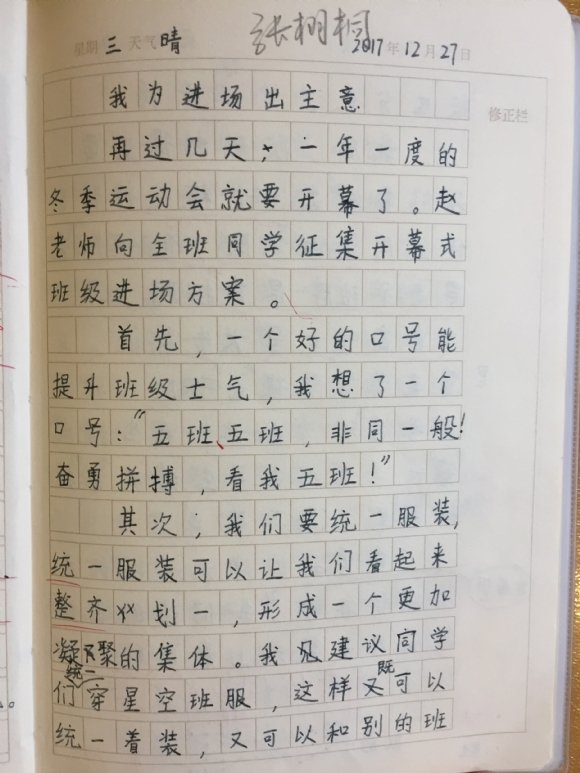 星期 三 天气 晴 张栩桐 2017年12月27日
修正栏
我为进场出主意
再过几天，一年一度的
冬季运动会就要开幕了。赵
老师向全班同学征集开幕式
班级进场方案。
首先，一个好的口号能
提升班级士气，我想了一个
口号：“五班、五班，非同一般！
奋勇拼搏，看我五班！”
其次，我们要统一服装，
统一服装可以让我们看起来
整齐划一，形成一个更加
凝聚的集体。我建议同学
们统一穿星空班服，这样既可以
统一着装，又可以和别的班